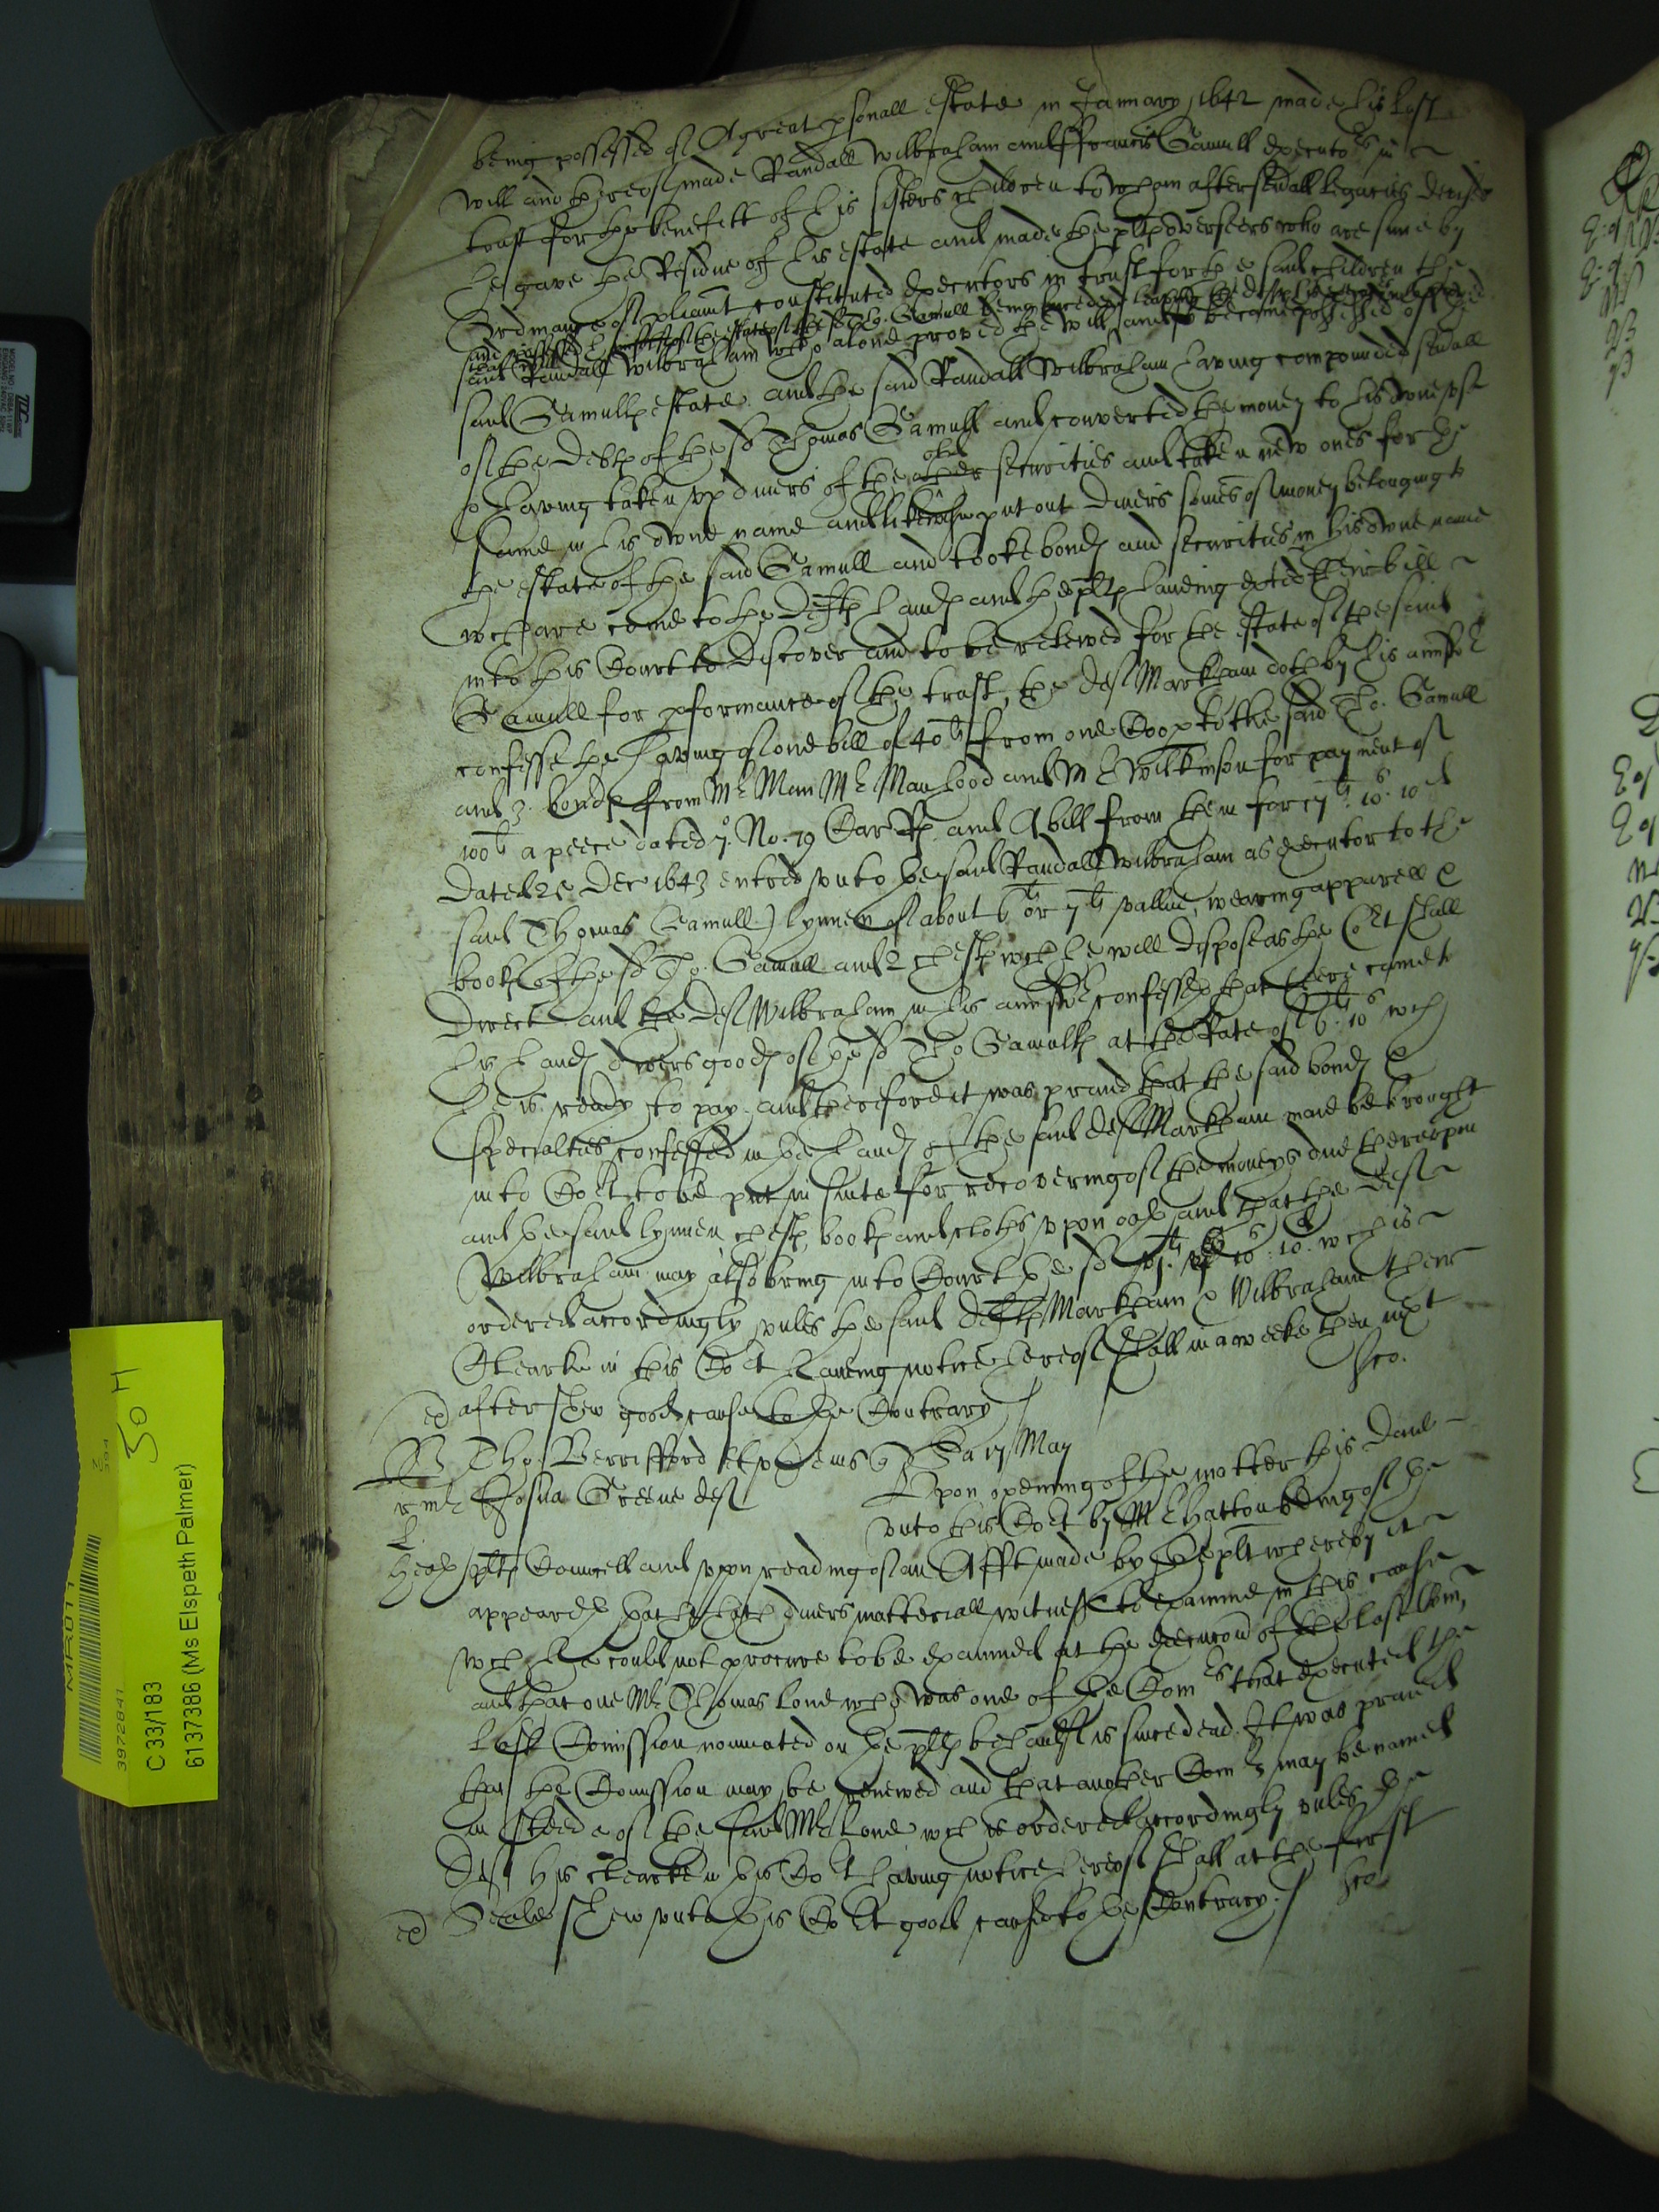 being possessed of A great psonall estate in January 1642 made his last
will and thereof made Randall Wilbraham and ffrancis Gamull executors in
trust for the benefitt of his sisters children to whom after seuall legacies devised
he gave the Residue of his estate and made the plts overseers who are since by
Ordinance of pliamt constituted executors in trust for the said children the
said Randall Wilbraham who alone proved the will and became possessed of the
said Gamulls estate and the said Randall Wilbraham having compounded seuall
of the Debts of the sd Thomas Gamull and converted the money to his owne use
& having taken up divers of the other old securities and taken new ones for the
same in his owne name and likewise put out divers somes of money belonging to
the estate of the said Gamull and tooke bonds and securities in his owne name
wch are come to the Defts hands and the plts haueing exted their bill
into this Court to discover and to be releived for the estate of the said
Gamull for pformance of the trust, the def Markham doth by his answer
confesse the having of one bill of 40li from one Coop to the said Tho. Gamull
and 3. bonds from Mr Man Mr Manhood and Mr Wilkinson for payment of
100li a peece dated 7o. No. 19 Car Rs and A bill from them for 17li. 10s. 10d
Dated 2 Dec 1643 entred unto the said Randall Wilbraham as executor to the
said Thomas Gamull) lynnen of about 6li or 7li vallue, wearing apparell &
books of the sd Tho. Gamull and 2 chests wch he will dispose as the Cort shall
direct and the Def Wilbraham in his answer confesseth that there came to
his hands divers goods of the sd Tho Gamulls at the Rate of 6li. 10s wch
he is ready to pay and therefore it was praied that the said bonds &
specialties confessed in the hands of the said def Markham maie be brought
into Cort to be put in suite for recovering of the moneys due thereupon
and the said lynnen chests, books and cloths upon oath and that the def
Wilbraham may also bring into Court the sd 10s. 10. wch is
ordered accordingly unles the said Defts Markham & Wilbraham their
Clearke in this Cort haueing notice hereof shall in a weeke then next
after shew good cause to the Contrary
Jco.
Tho. Berrifford plt Sa 17 May
Josua Greene def Upon opening of the matter this Daie
unto this Cort by Mr Hatton being of the
plts Councell and upon reading of an Afft made by the plt whereby it
appeared that he hath divers matteriall witnesses to examine in this cause
wch he could not procure to be examined at the execucon of the last Com
and that one Mr Thomas Lone who was one of the Comrs that executed the
last Comission nominated on the plts behaulf is since dead. It was praied
that the Comission may be renewed and that another Comr may be named
in steede of the said Mr Lone wch is ordered accordingly unles the
Def his clearke in this Cort having notice hereof shall at the first
Seale shew unto this Cort good cause to the Contrary. Jco
3972841
C 33/183
6137386 (Ms Elspeth Palmer)
50 H